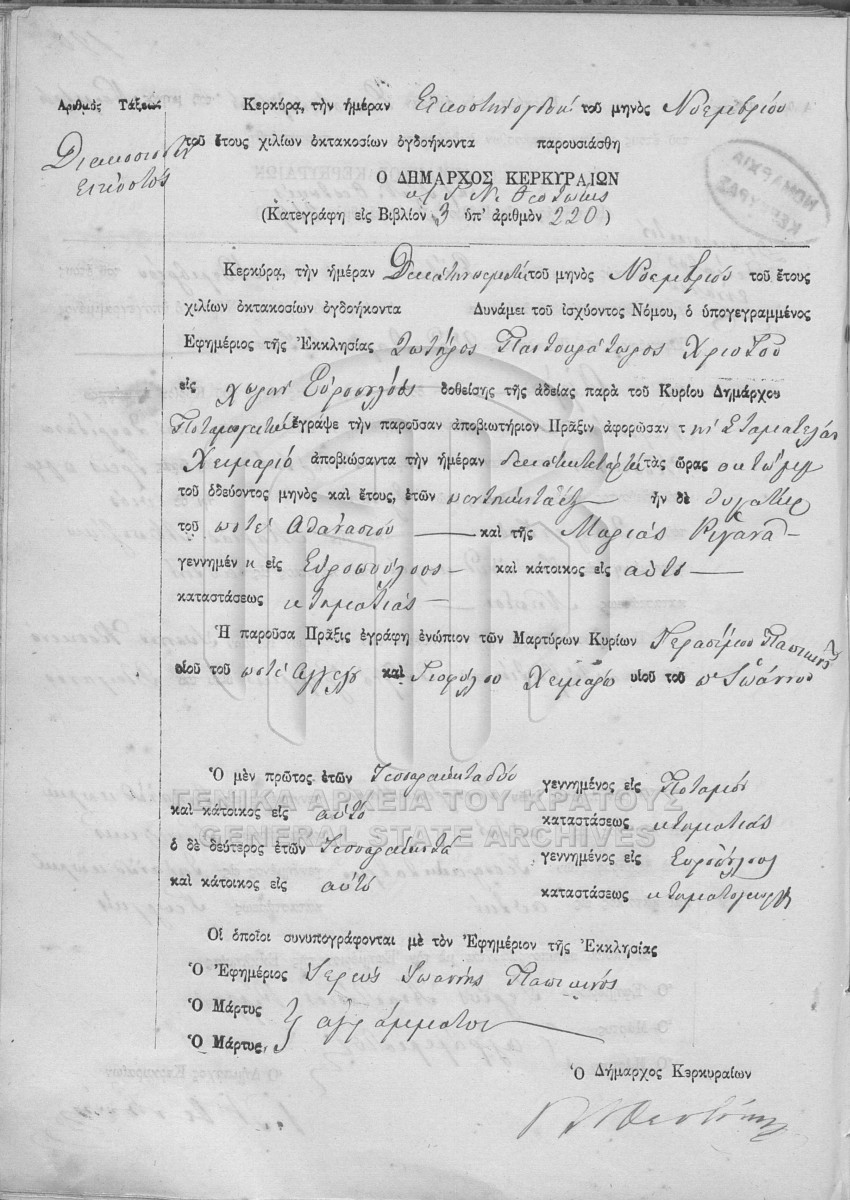 Ἀριθμὸς Τάξεως
Διακοσιοστὸν
εἰκοστὸς
Κερκύρα, τὴν ἡμέραν Εἰκοστηνογδόην τοῦ μηνὸς Νοεμβρίου
τοῦ ἔτους χιλίων ὀκτακοσίων ὀγδοήκοντα παρουσιάσθη
Ὁ ΔΗΜΑΡΧΟΣ ΚΕΡΚΥΡΑΙΩΝ
(Κατεγράφη εἰς Βιβλίον 3 ὑπ' ἀριθμὸν 220)
ΝΟΜΑΡΧΙΑ
ΚΕΡΚΥΡΑΣ
Κερκύρα, τὴν ἡμέραν τοῦ μηνὸς Νοεμβρίου τοῦ ἔτους
χιλίων ὀκτακοσίων ὀγδοήκοντα Δυνάμει τοῦ ἰσχύοντος Νόμου, ὁ ὑπογεγραμμένος
Ἐφημέριος τῆς Ἐκκλησίας Σωτῆρος Παντοκράτωρος Χριστοῦ
εἰς χωρίον Εὐροπούλους δοθείσης τῆς ἀδείας παρὰ τοῦ Κυρίου Δημάρχου
Ποταμογειτ ἔγραψε τὴν παροῦσαν ἀποβιωτήριον Πρᾶξιν ἀφορῶσαν τ ην Σταματέλαν
Χειμαριὸ ἀποβιώσαντα τὴν ἡμέραν δεκάτην τετάρτην τὰς ὥρας ὀκτὼ μ
τοῦ ὁδεύοντος μηνὸς καὶ ἔτους, ἐτῶν πεντήκοντα ἕξ ἦν δὲ θυγάτηρ
τοῦ ποτὲ Ἀθανασίου καὶ τῆς Μαρίας Ριγανα
γεννημέν η εἰς Εὐροπούλους καὶ κάτοικος εἰς αὐτὸ
καταστάσεως κτηματίας
Ἡ παροῦσα Πρᾶξις ἐγράφη ἐνώπιον τῶν Μαρτύρων Κυρίων Γερασίμου Παπικινοῦ
υἱοῦ τοῦ ποτὲ Ἀγγέλου καὶ Θεοφύλου Χειμαριὸ υἱοῦ τοῦ π Ἰωάννου
Ὁ μὲν πρῶτος ἐτῶν τεσσαρακονταδύο γεννημένος εἰς Ποταμὸν
καὶ κάτοικος εἰς αὐτὸ καταστάσεως κτηματίας
ὁ δὲ δεύτερος ἐτῶν τεσσαράκοντα γεννημένος εἰς Εὐροπούλους
καὶ κάτοικος εἰς αὐτὸ καταστάσεως κτηματογεωργὸς
ΓΕΝΙΚΑ ΑΡΧΕΙΑ ΤΟΥ ΚΡΑΤΟΥΣ
GENERAL STATE ARCHIVES
Οἱ ὁποῖοι συνυπογράφονται μὲ τὸν Ἐφημέριον τῆς Ἐκκλησίας
Ὁ Ἐφημέριος Ἱερεὺς Ἰωάννης Παπικινὸς
Ὁ Μάρτυς
Ὁ Μάρτυς, } ἀγράμματοι
Ὁ Δήμαρχος Κερκυραίων